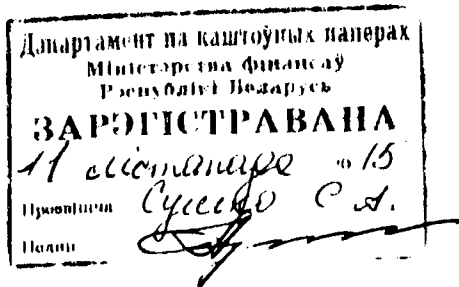 Дэпартамент па каштоўных паперах
Міністэрства фінансаў
Рэспублікі Беларусь
ЗАРЭГІСТРАВАНА
11 лістапада 2015
Прозвішча С. А.
Подпіс